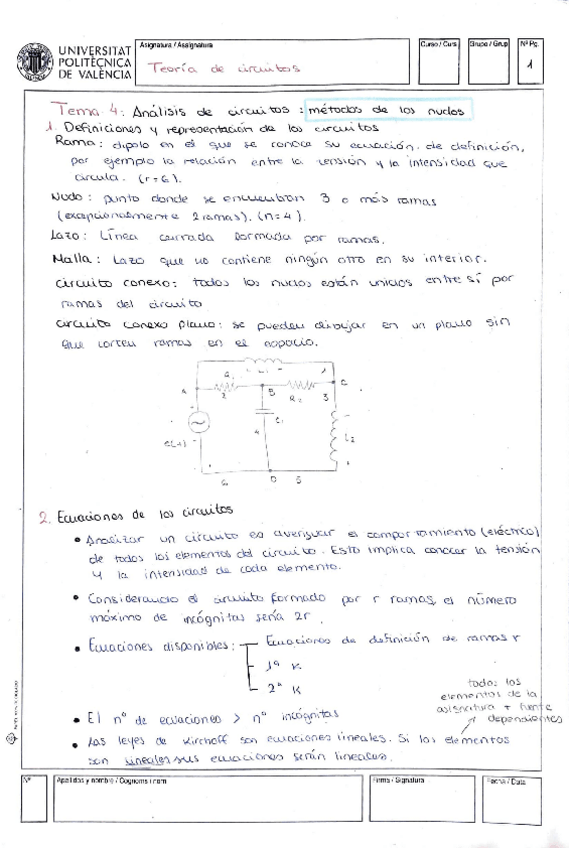 UNIVERSITAT
POLITÈCNICA
DE VALÈNCIA
Asignatura / Assignatura
Teoría de circuitos
Curso / Curs
Grupo / Grup
Nº Pg.
1
Tema 4: Análisis de circuitos : métodos de los nudos
1. Definiciones y representación de los circuitos
Rama: dipolo en el que se conoce su ecuación de definición,
por ejemplo la relación entre la tensión y la intensidad que
circula. (r=6).
Nudo: punto donde se encuentran 3 o más ramas
(excepcionalmente 2 ramas). (n=4).
Lazo: Línea cerrada formada por ramas.
Malla: Lazo que no contiene ningún otro en su interior.
circuito conexo: todos los nudos están unidos entre sí por
ramas del circuito
circuito conexo plano: se pueden dibujar en un plano sin
que corten ramas en el espacio.
1
A
2
B
R2
3
C
C1
4
L2
D
5
2. Ecuaciones de los circuitos
• Analizar un circuito es averiguar el comportamiento (eléctrico)
de todos los elementos del circuito. Esto implica conocer la tensión
y la intensidad de cada elemento.
• Considerando el circuito formado por r ramas, el número
máximo de incógnitas sería 2r.
• Ecuaciones disponibles: Ecuaciones de definición de ramas r
1ª K
2ª K
todos los
elementos de la
asignatura + fuente
dependientes
• El nº de ecuaciones > nº incógnitas
• Las leyes de Kirchoff son ecuaciones lineales. Si los elementos
son lineales sus ecuaciones serán lineales.
Nº
Apellidos y nombre / Cognoms i nom
Firma / Signatura
Fecha / Data